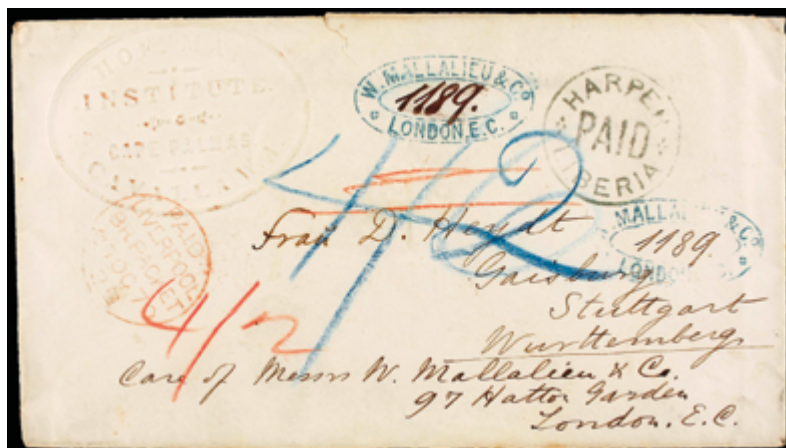 INSTITUTE
CAPE PALMAS
W. MALLALIEU & Co
1189.
LONDON, E.C.
HARPER
PAID
LIBERIA
4/2
MALLALIEU & Co
1189.
LONDON
PAID
LIVERPOOL
BR. PACKET
4/2
Frau D. Heydt
Gaisburg
Stuttgart
Wurttemberg
Care of Messrs W. Mallalieu & Co.
97 Hatton Garden
London. E.C.